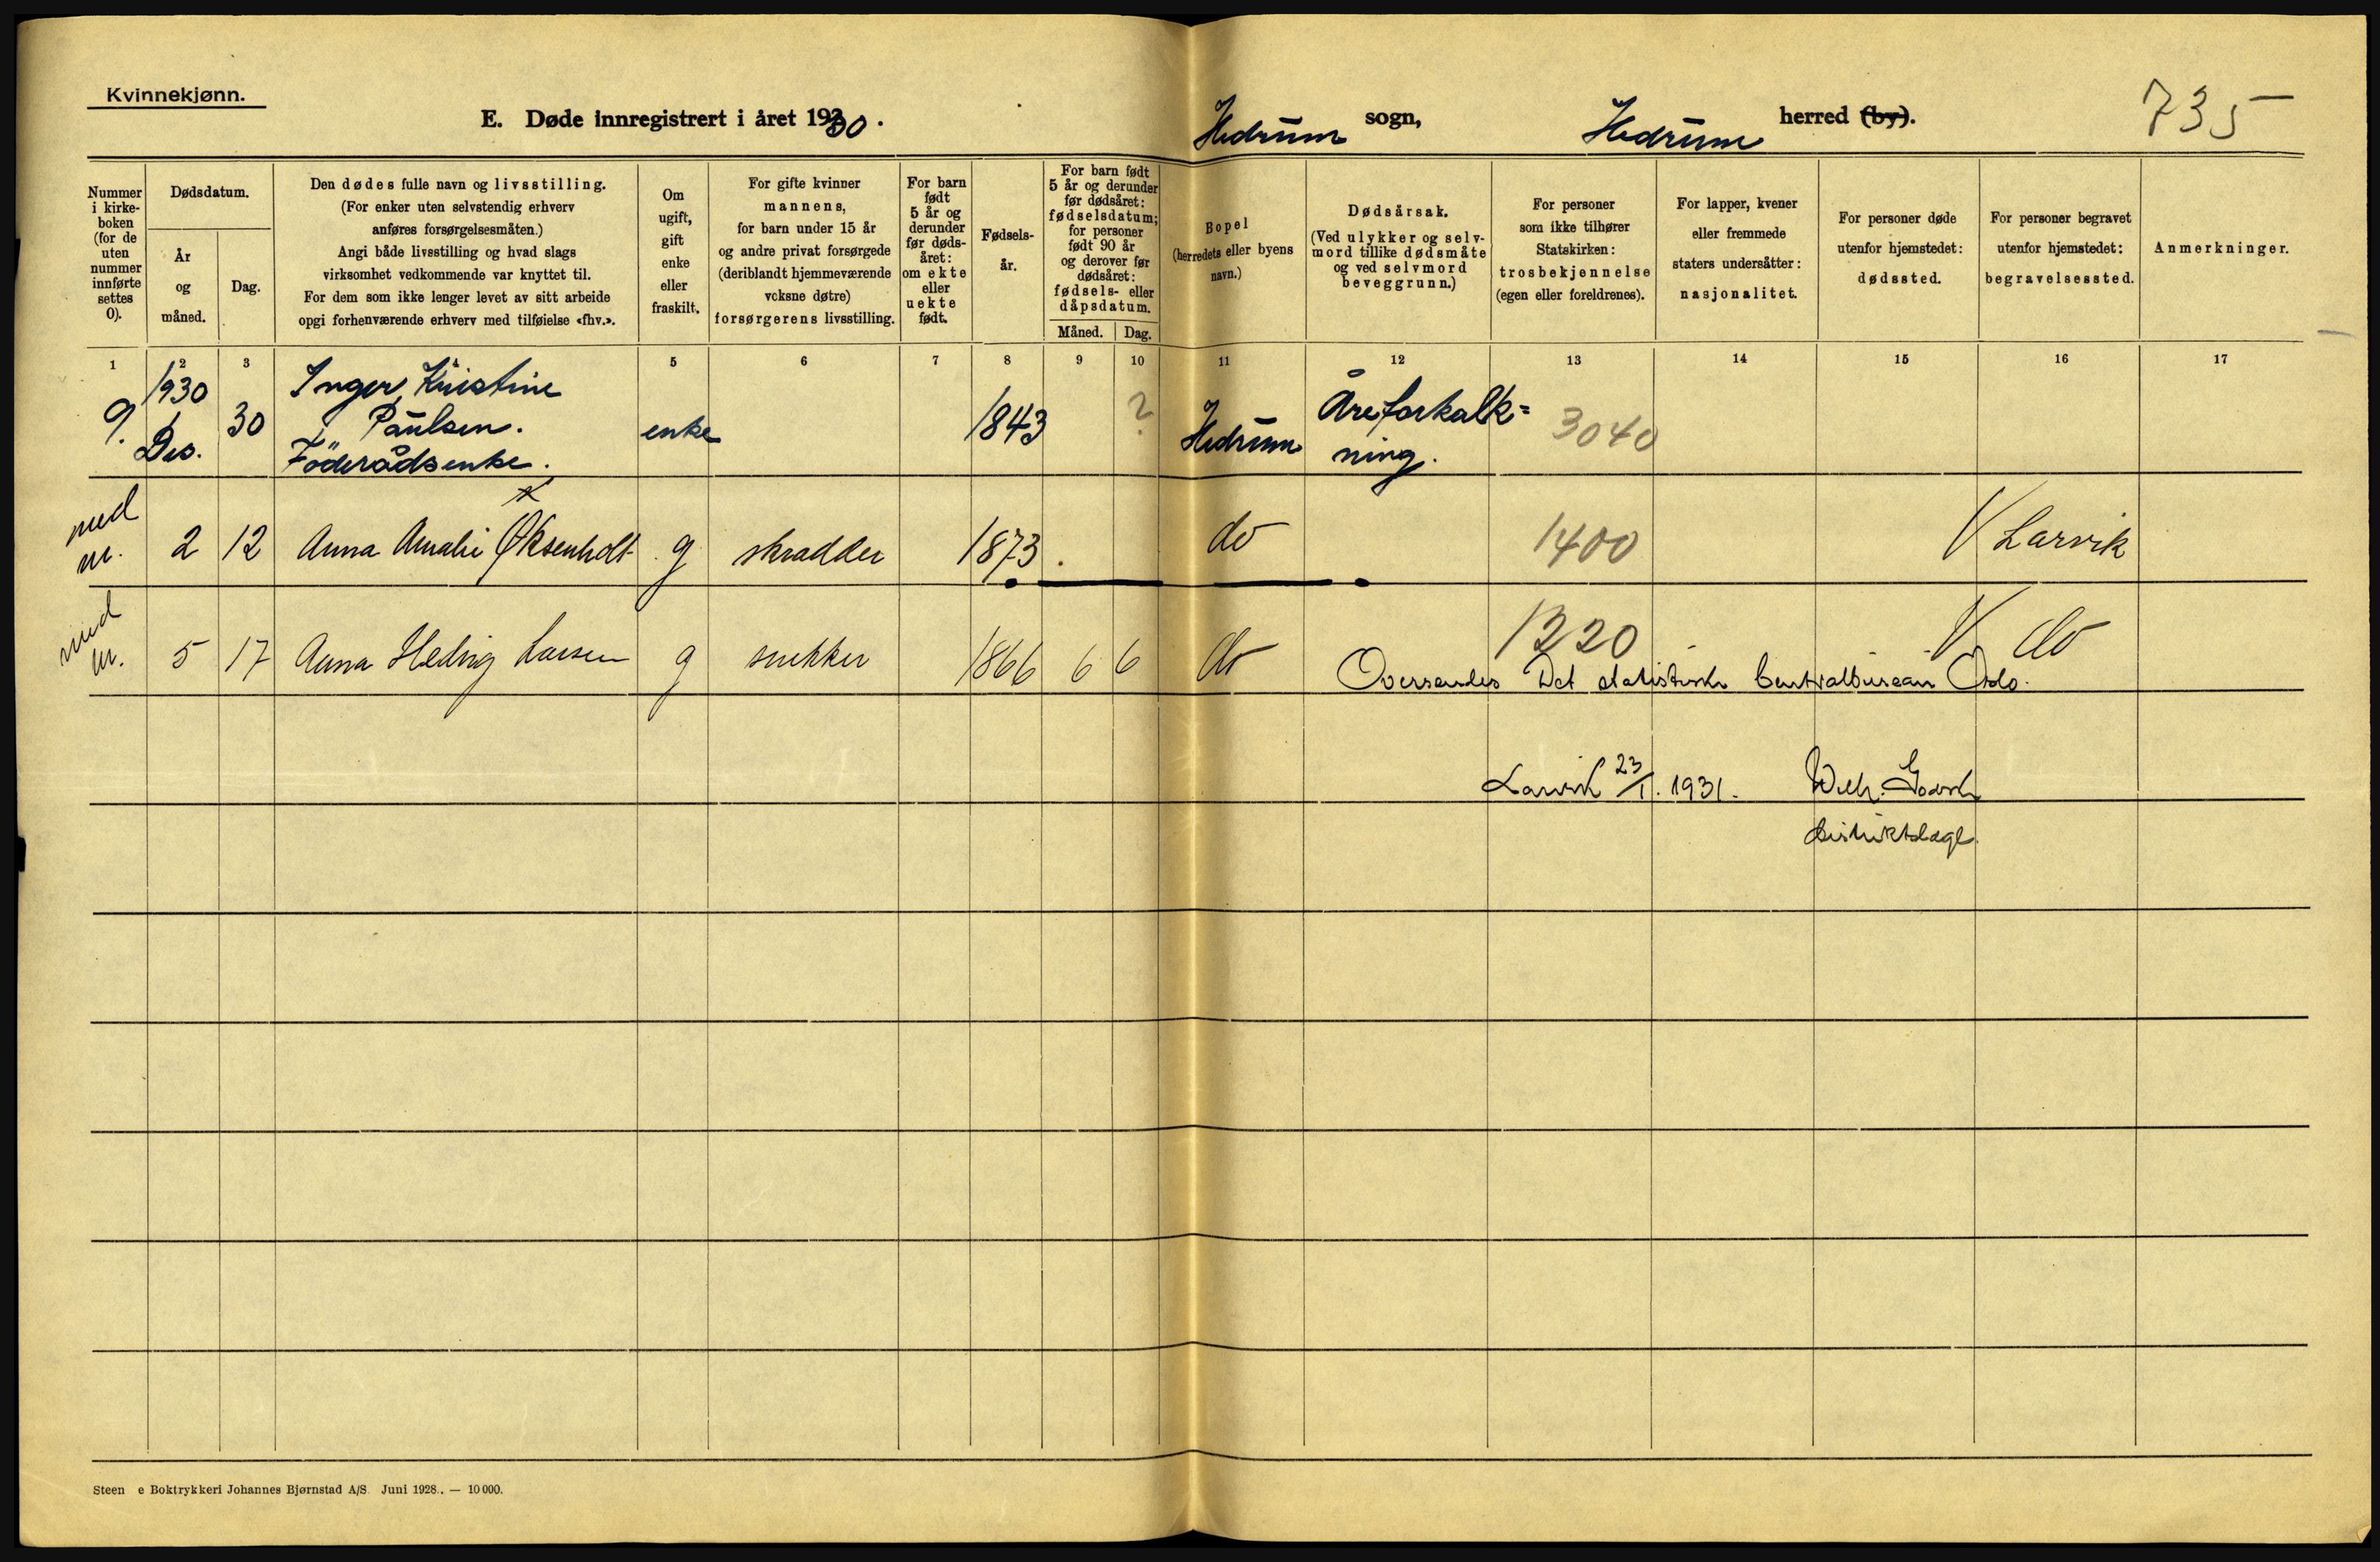 Kvinnekjønn.
E. Døde innregistrert i året 1930.
Hedrum sogn, Hedrum herred (by).
735
Nummer i kirkeboken (for de uten nummer innførte settes 0).
Dødsdatum.
År og måned.
Dag.
Den dødes fulle navn og livsstilling.
(For enker uten selvstendig erhverv
anføres forsørgelsesmåten.)
Angi både livsstilling og hvad slags
virksomhet vedkommende var knyttet til.
For dem som ikke lenger levet av sitt arbeide
opgi forhenværende erhverv med tilføielse «fhv.».
Om ugift, gift enke eller fraskilt.
For gifte kvinner
mannens,
for barn under 15 år
og andre privat forsørgede
(deriblandt hjemmeværende
voksne døtre)
forsørgerens livsstilling.
For barn født 5 år og derunder før dødsåret: om ekte eller uekte født.
Fødselsår.
For barn født
5 år og derunder
før dødsåret:
fødselsdatum;
for personer
født 90 år
og derover før
dødsåret:
fødsels- eller
dåpsdatum.
Måned. Dag.
Bopel
(herredets eller byens
navn.)
Dødsårsak.
(Ved ulykker og selv-
mord tillike dødsmåte
og ved selvmord
beveggrunn.)
For personer
som ikke tilhører
Statskirken:
trosbekjennelse
(egen eller foreldrenes).
For lapper, kvener
eller fremmede
staters undersåtter:
nasjonalitet.
For personer døde
utenfor hjemstedet:
dødssted.
For personer begravet
utenfor hjemstedet:
begravelsessted.
Anmerkninger.
1 2 3 4 5 6 7 8 9 10 11 12 13 14 15 16 17
9. 1930 Des. 30 Inger Kristine Paulsen. Föderådsenke. enke 1843 ? Hedrum Åreforkalk=ning. 3040
med nr. 2 12 Anna Amalie Øksenholt g skradder 1873. do 1400 V Larvik
med nr. 5 17 Anna Hedvig Larsen g snekker 1866 6 6 do 1220 V do
Oversendes Det statistiske Centralbureau Oslo.
Larvik 23/1. 1931. Wilh.
distriktslæge
Steen e Boktrykkeri Johannes Bjørnstad A/S. Juni 1928. — 10 000.